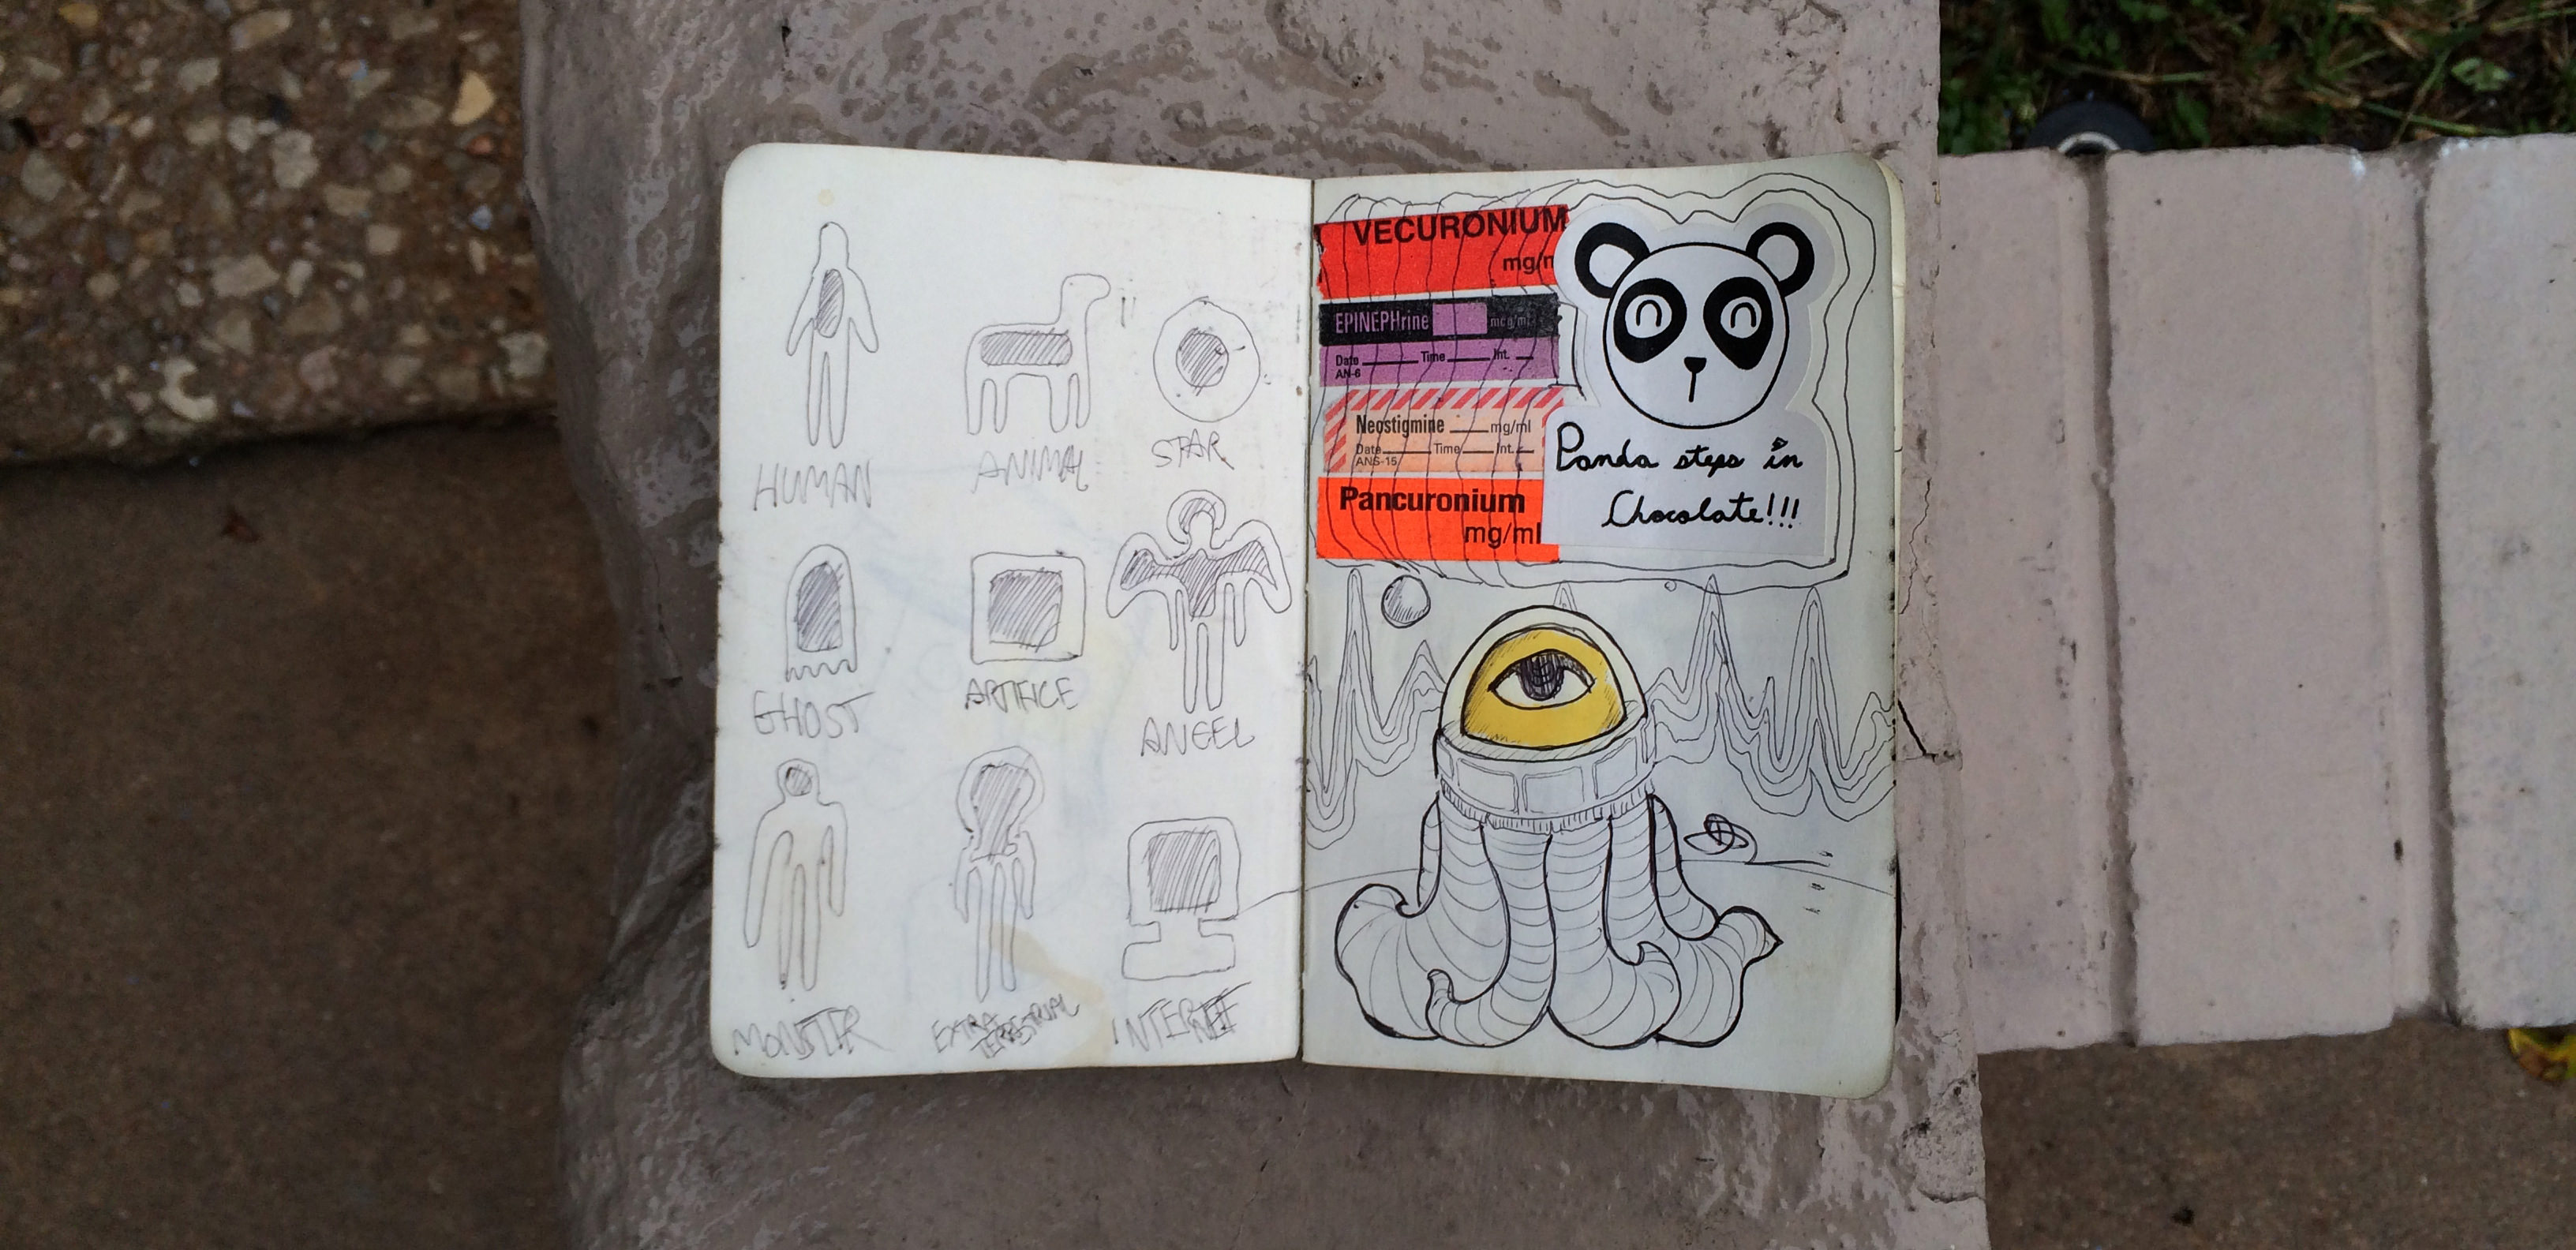 HUMAN
ANIMAL
STAR
GHOST
ARTIFICE
ANGEL
MONSTER
EXTRA
TERRESTRIAL
INTERNET
VECURONIUM
mg/m
EPINEPHrine mcg/ml
Date Time Int.
AN-6
Neostigmine mg/ml
Date Time Int.
ANS-15
Pancuronium
mg/ml
Panda steps in
Chocolate!!!